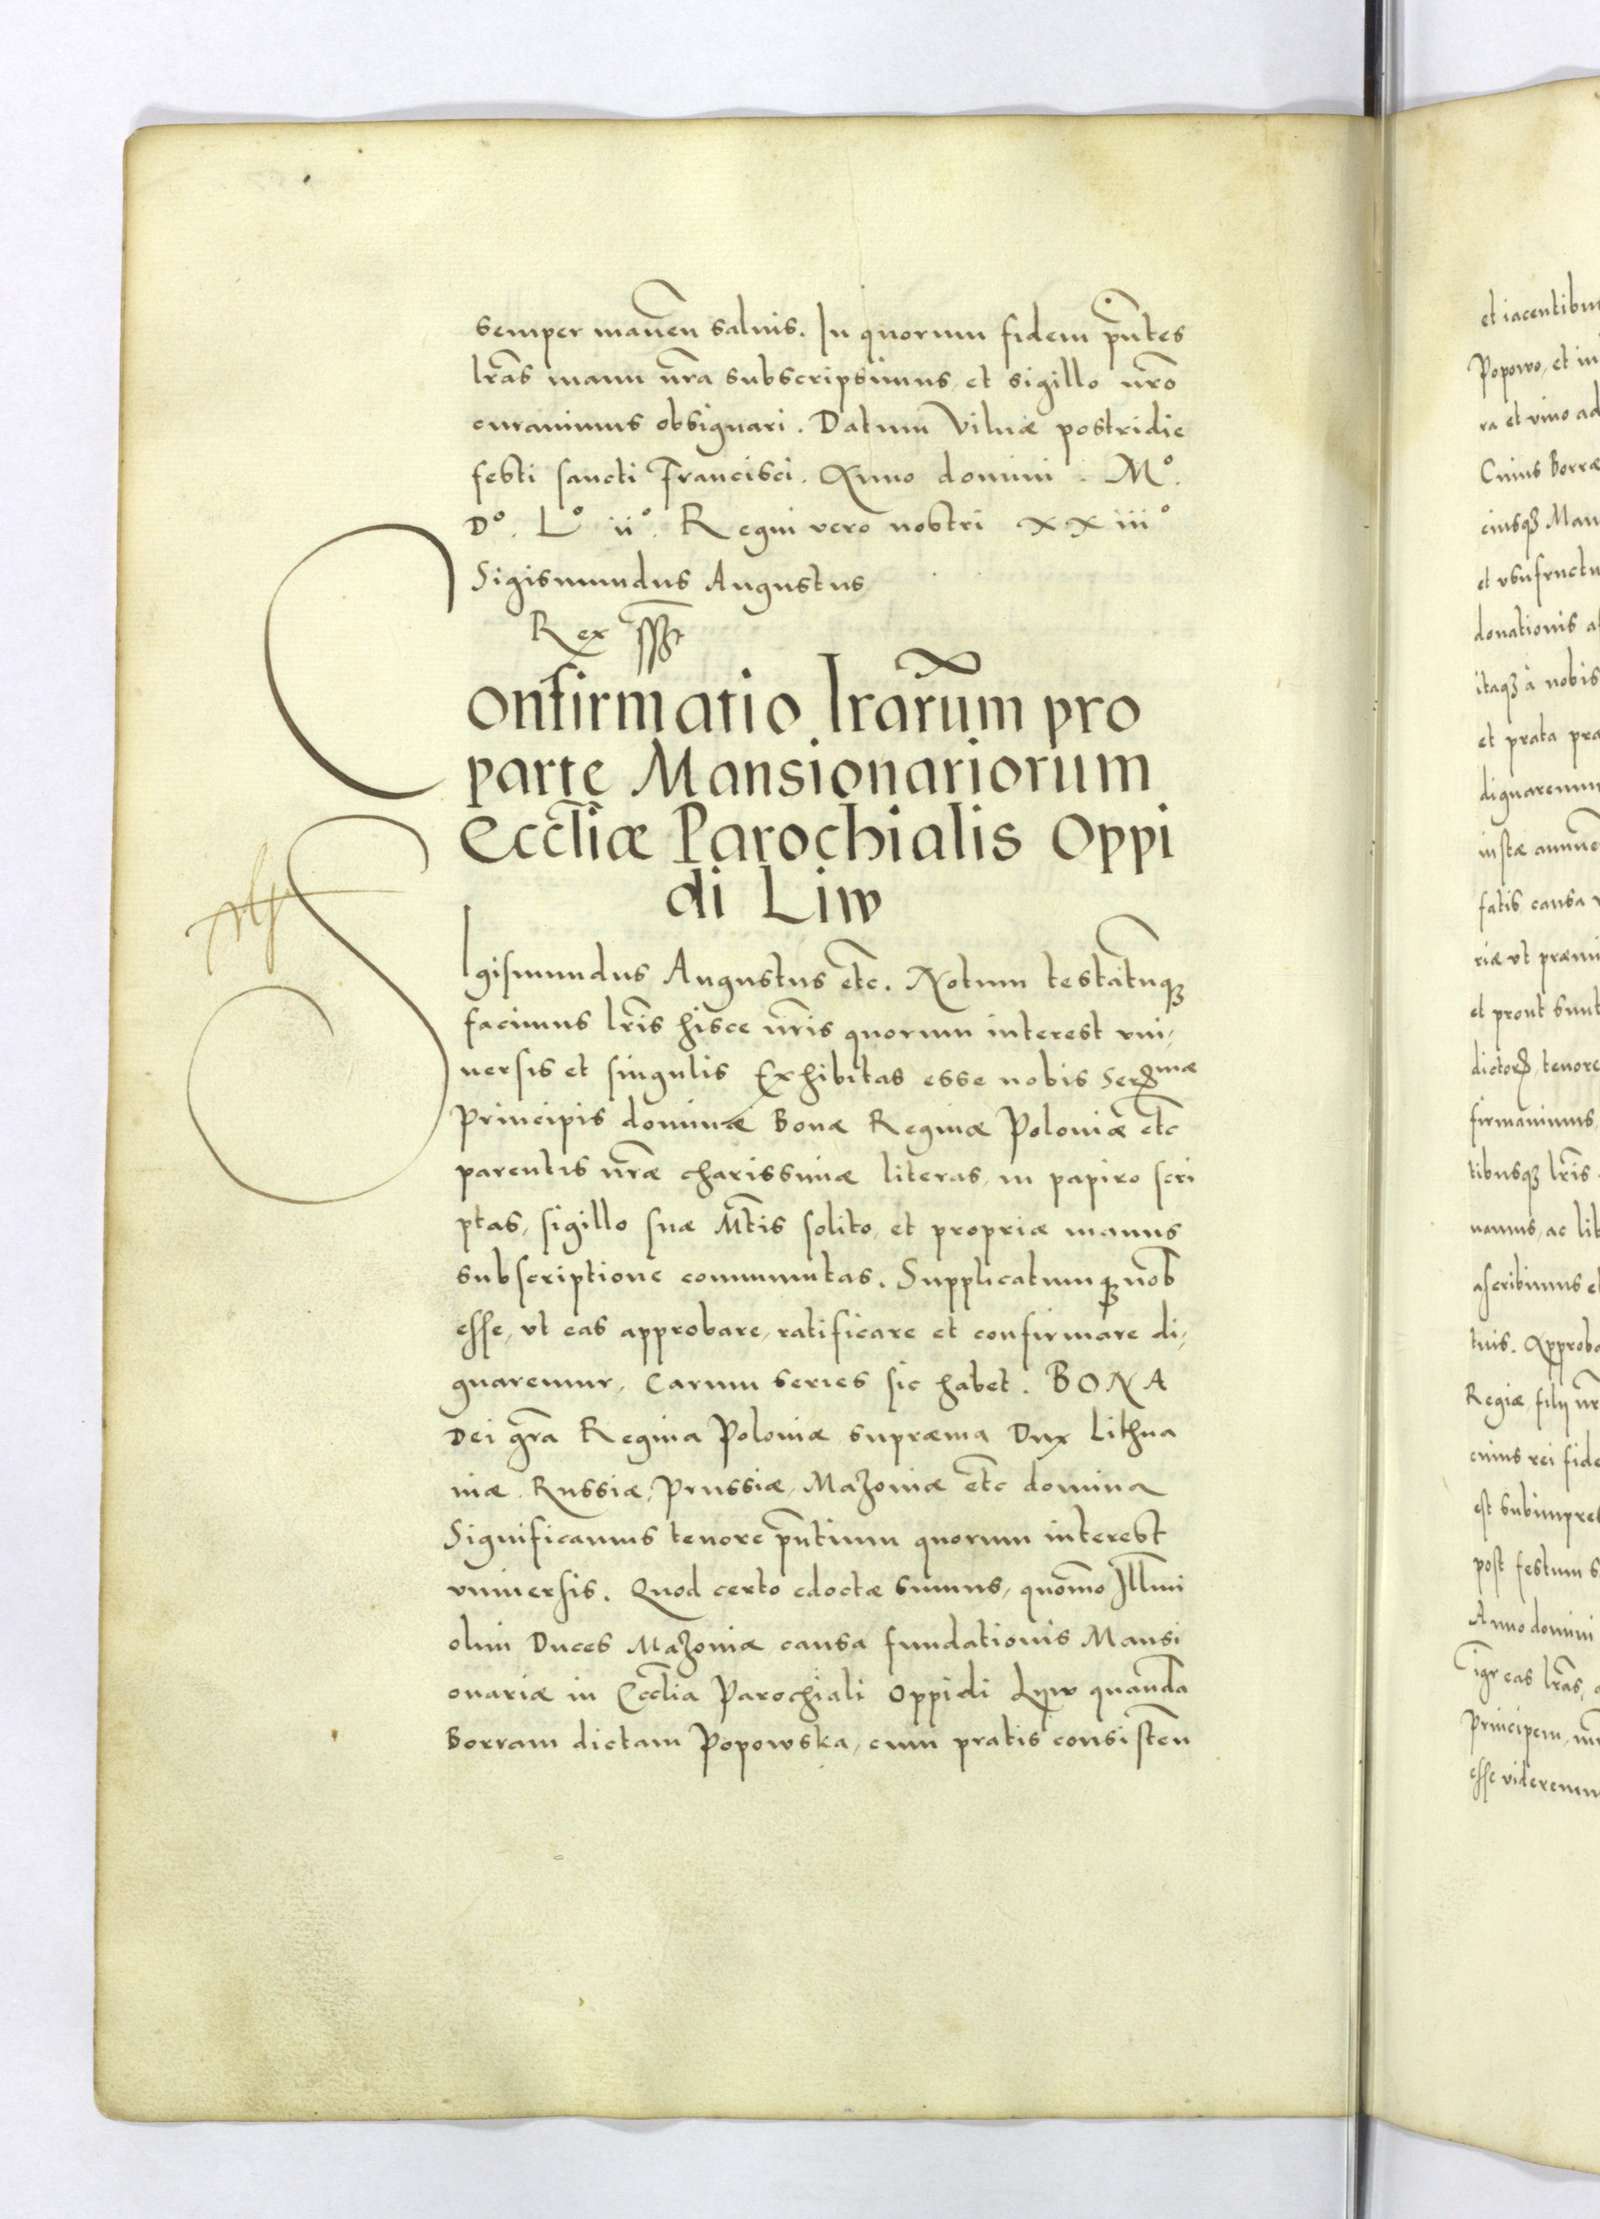 semper manēn saluis. In quorum fidem pn̄tes
lr̄as manu nr̄a subscripsimus, et sigillo nr̄o
curauimus obsignari. Datum Vilnæ postridie
festi sancti Francisci. Anno domini. M°.
D°. L° ii°. Regni vero nostri xxiii°
Sigismundus Augustus
Rex
Confirmatio lrarum̄ pro
parte Mansionariorum
Eccl̄iæ Parochialis Oppi
di Liw
SIgismundus Augustus etc̄. Notum testatumq₃
facimus lr̄is hisce nr̄is quorum interest vni,
uersis et singulis Exhibitas esse nobis Ser͞mæ
Principis dominæ Bonæ Reginæ Poloniæ etc̄
parentis nr̄æ charissimæ literas, in papiro scri
ptas, sigillo suæ Mt̄is solito, et propriæ manus
subscriptione communitas. Supplicatumq₃ nob̄
esse, vt eas approbare, ratificare et confirmare di,
gnaremur, Earum series sic habet. BONA
Dei gr̄a Regina Poloniæ supræma Dux Lithua
niæ, Russiæ, Prussiæ, Mazoniæ etc̄ domina
Significamus tenore pn̄tium quorum interest
vniuersis. Quod certo edoctæ sumus, quom̄o Ill̄mi
olim Duces Mazoniæ causa fundationis Mansi
onariæ in Eccl̄ia Parochiali Oppidi Lyw quandā
Borram dictam Popowska, cum pratis consisten̄
et iacentibu
Popowo, et in
ra et vino ad
Cuius Borræ
eiusq₃ Man
et vsufructu
donationis
itaq₃ à nobis
et prata
dignaremur
iustæ
fatis causa
riæ vt præmi
et prout sunt
tenore
firmauimus,
tibusq₃ lr̄is
uamus, ac lib
ascribimus et
tuis. Approba
Regiæ filij nr̄
cuius rei fide
est subimpres
post festum s
Anno domini
igr̄ eas lr̄as,
Principem,
esse viderenu